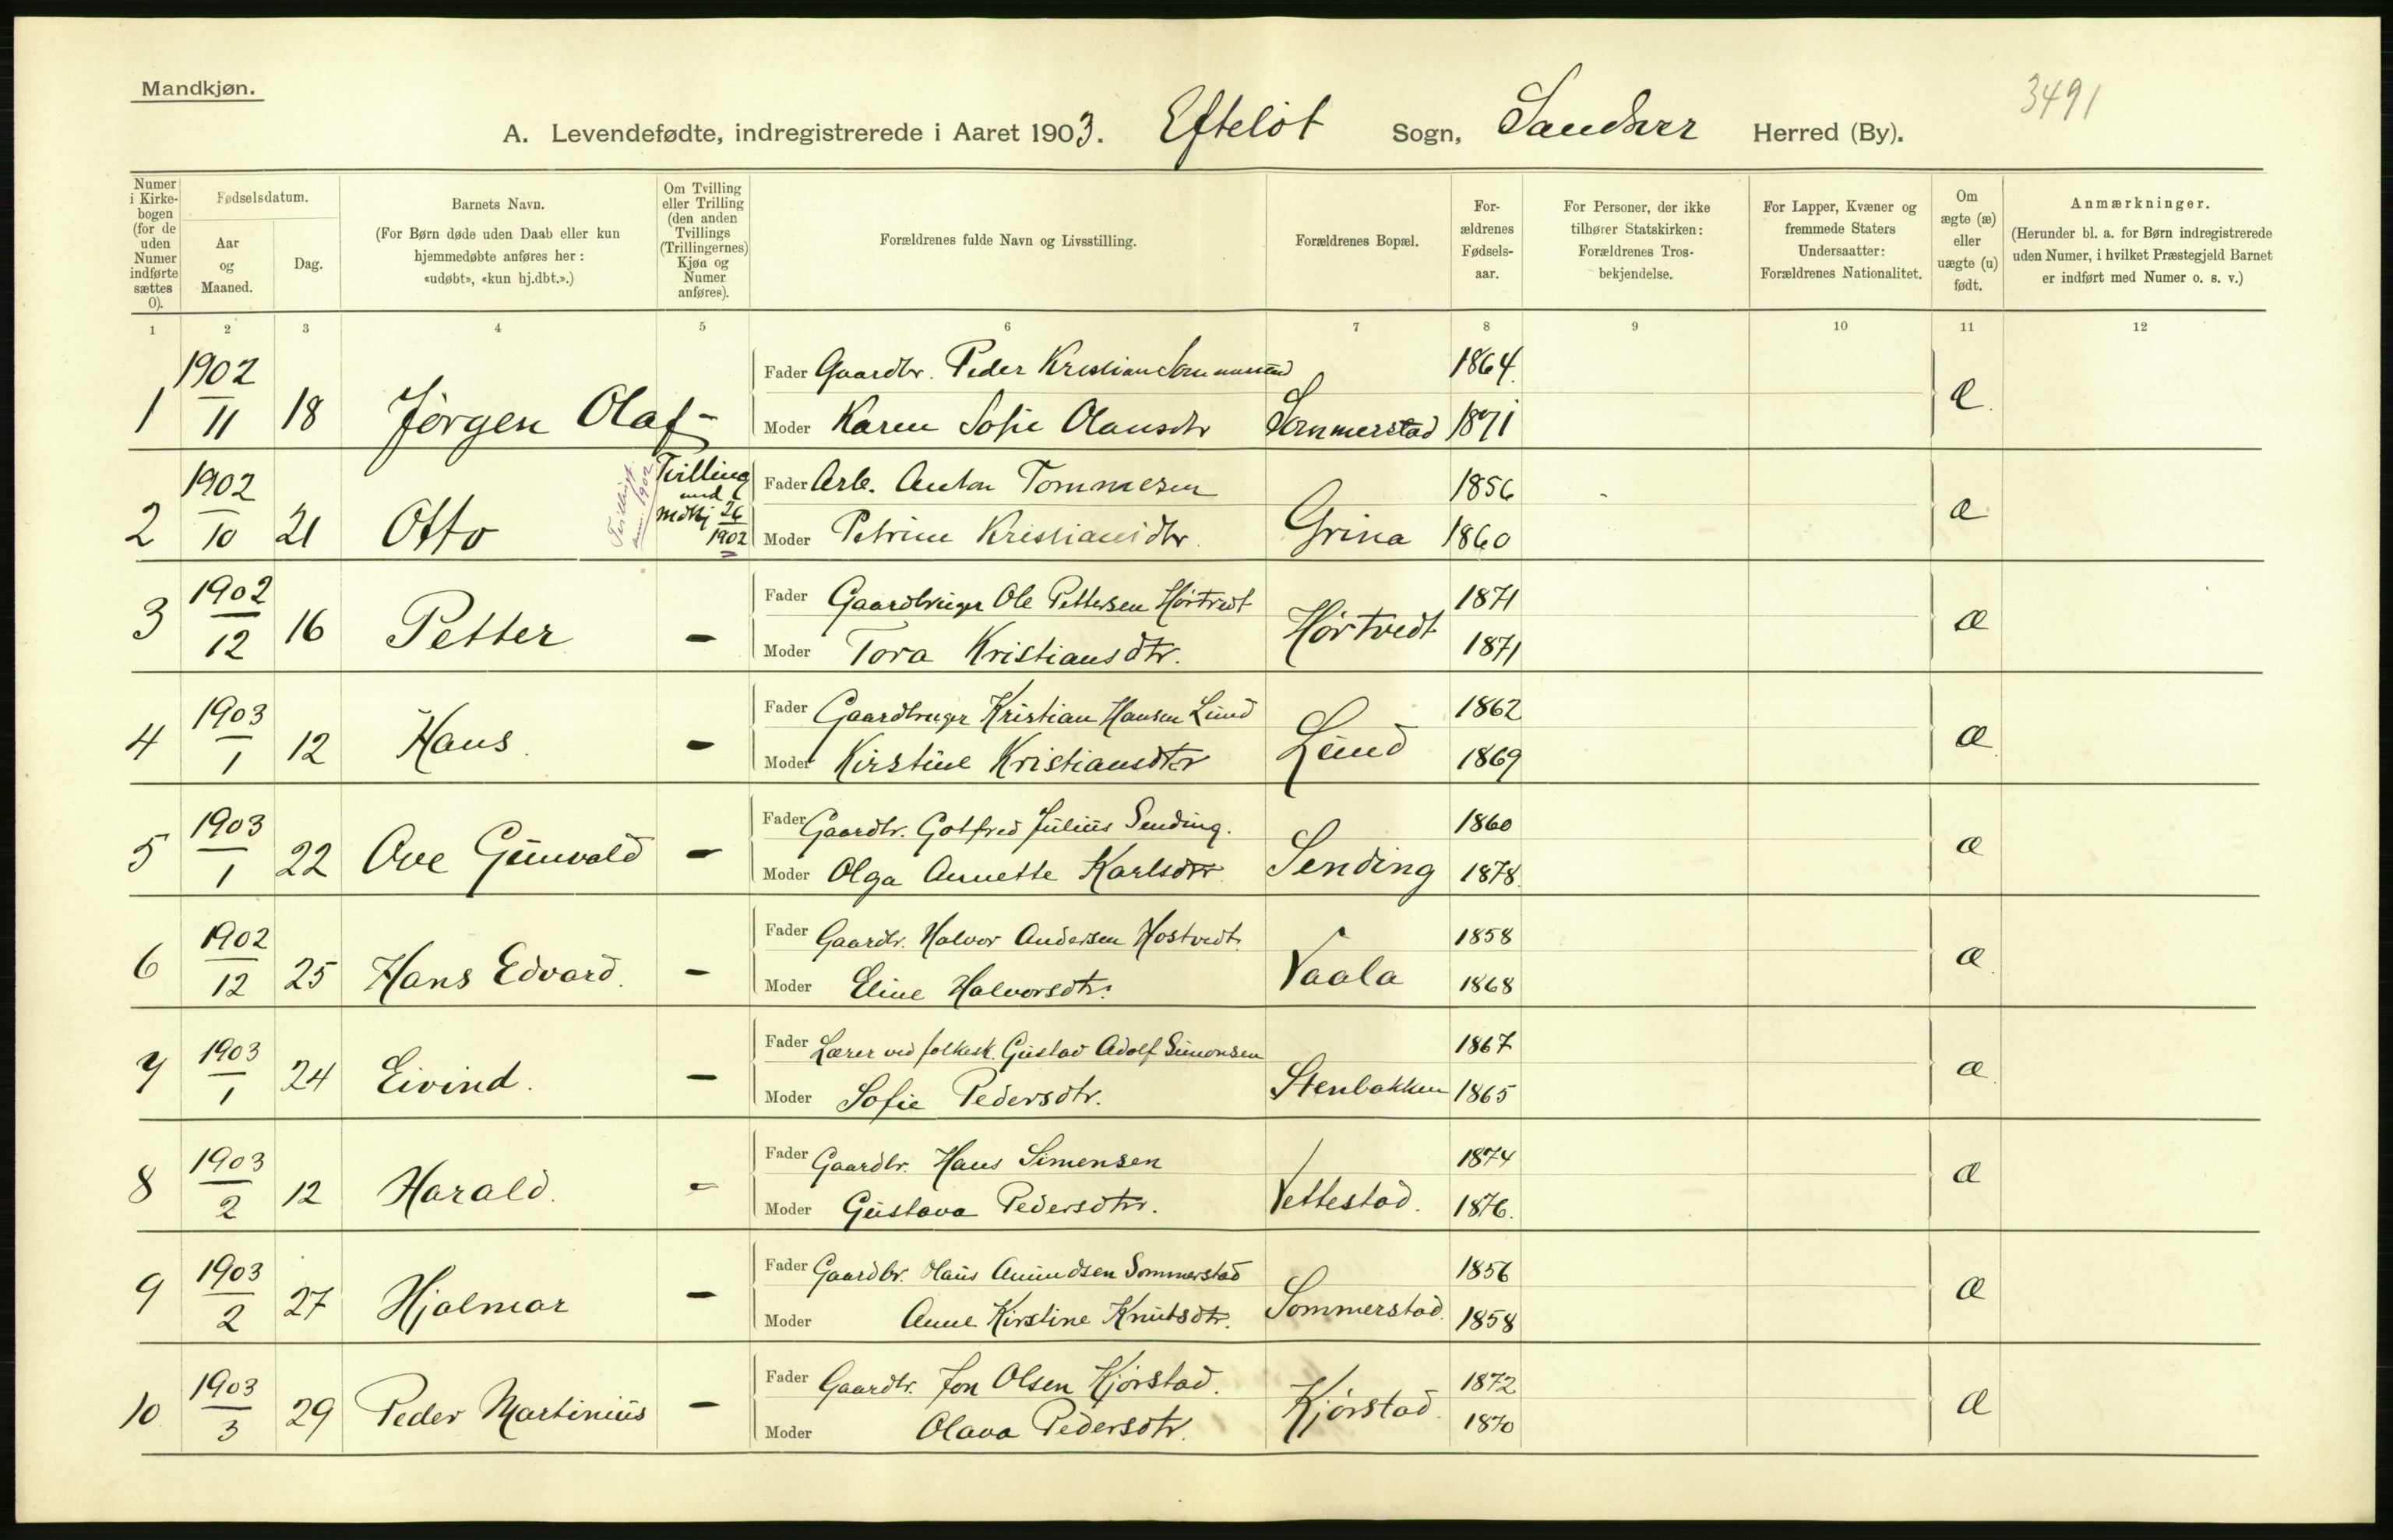 Mandkjøn.
3491
A. Levendefødte, indregistrerede i Aaret 1903. Efteløt Sogn, Sandsvær Herred (By).
Numer i Kirkebogen (for de uden Numer indførte sættes 0).
Fødselsdatum.
Aar og Maaned.
Dag.
Barnets Navn.
(For Børn døde uden Daab eller kun hjemmedøbte anføres her: «udøbt», «kun hj.dbt.».)
Om Tvilling eller Trilling (den anden Tvillings (Trillingernes) Kjøn og Numer anføres).
Forældrenes fulde Navn og Livsstilling.
Forældrenes Bopæl.
For-ældrenes Fødsels-aar.
For Personer, der ikke tilhører Statskirken: Forældrenes Tros-bekjendelse.
For Lapper, Kvæner og fremmede Staters Undersaatter: Forældrenes Nationalitet.
Om ægte (æ) eller uægte (u) født.
Anmærkninger.
(Herunder bl. a. for Børn indregistrerede uden Numer, i hvilket Præstegjeld Barnet er indført med Numer o. s. v.)
1 2 3 4 5 6 7 8 9 10 11 12
1 1902 11 18 Jørgen Olaf -
Fader Gaardbr. Peder Kristian Sommerstad 1864
Moder Karen Sofie Olausdtr Sommerstad 1871 æ
2 1902 10 21 Otto Tvilling med Mdkj 26 1902
Fader Arb. Anton Tommesen 1856
Moder Petrine Kristiansdtr. Grina 1860 æ
3 1902 12 16 Petter -
Fader Gaardbruger Ole Pettersen Hörtvedt 1871
Moder Tora Kristiansdtr. Hörtvedt 1871 æ
4 1903 1 12 Hans -
Fader Gaardbruger Kristian Hansen Lund 1862
Moder Kirstine Kristiansdtr Lund 1869 æ
5 1903 1 22 Ove Gunvald -
Fader Gaardbr. Gotfred Julius Sending. 1860
Moder Olga Annette Karlsdtr Sending 1878 æ
6 1902 12 25 Hans Edvard. -
Fader Gaardbr. Halvor Andersen Hostvedt. 1858
Moder Eline Halvorsdtr. Vaala 1868 æ
7 1903 1 24 Eivind. -
Fader Lærer ved folkesk. Gustav Adolf Simonsen 1867
Moder Sofie Pedersdtr. Stenbakken 1865 æ
8 1903 2 12 Harald. -
Fader Gaardbr. Hans Simensen 1874
Moder Gustava Pedersdtr. Vettestad. 1876. æ
9 1903 2 27 Hjalmar -
Fader Gaardbr. Hans Amundsen Sommerstad 1856
Moder Anne Kirstine Knutsdtr. Sommerstad. 1858 æ
10 1903 3 29 Peder Martinius -
Fader Gaardbr. Jon Olsen Kjørstad. 1872
Moder Olava Pedersdtr. Kjørstad. 1870 æ